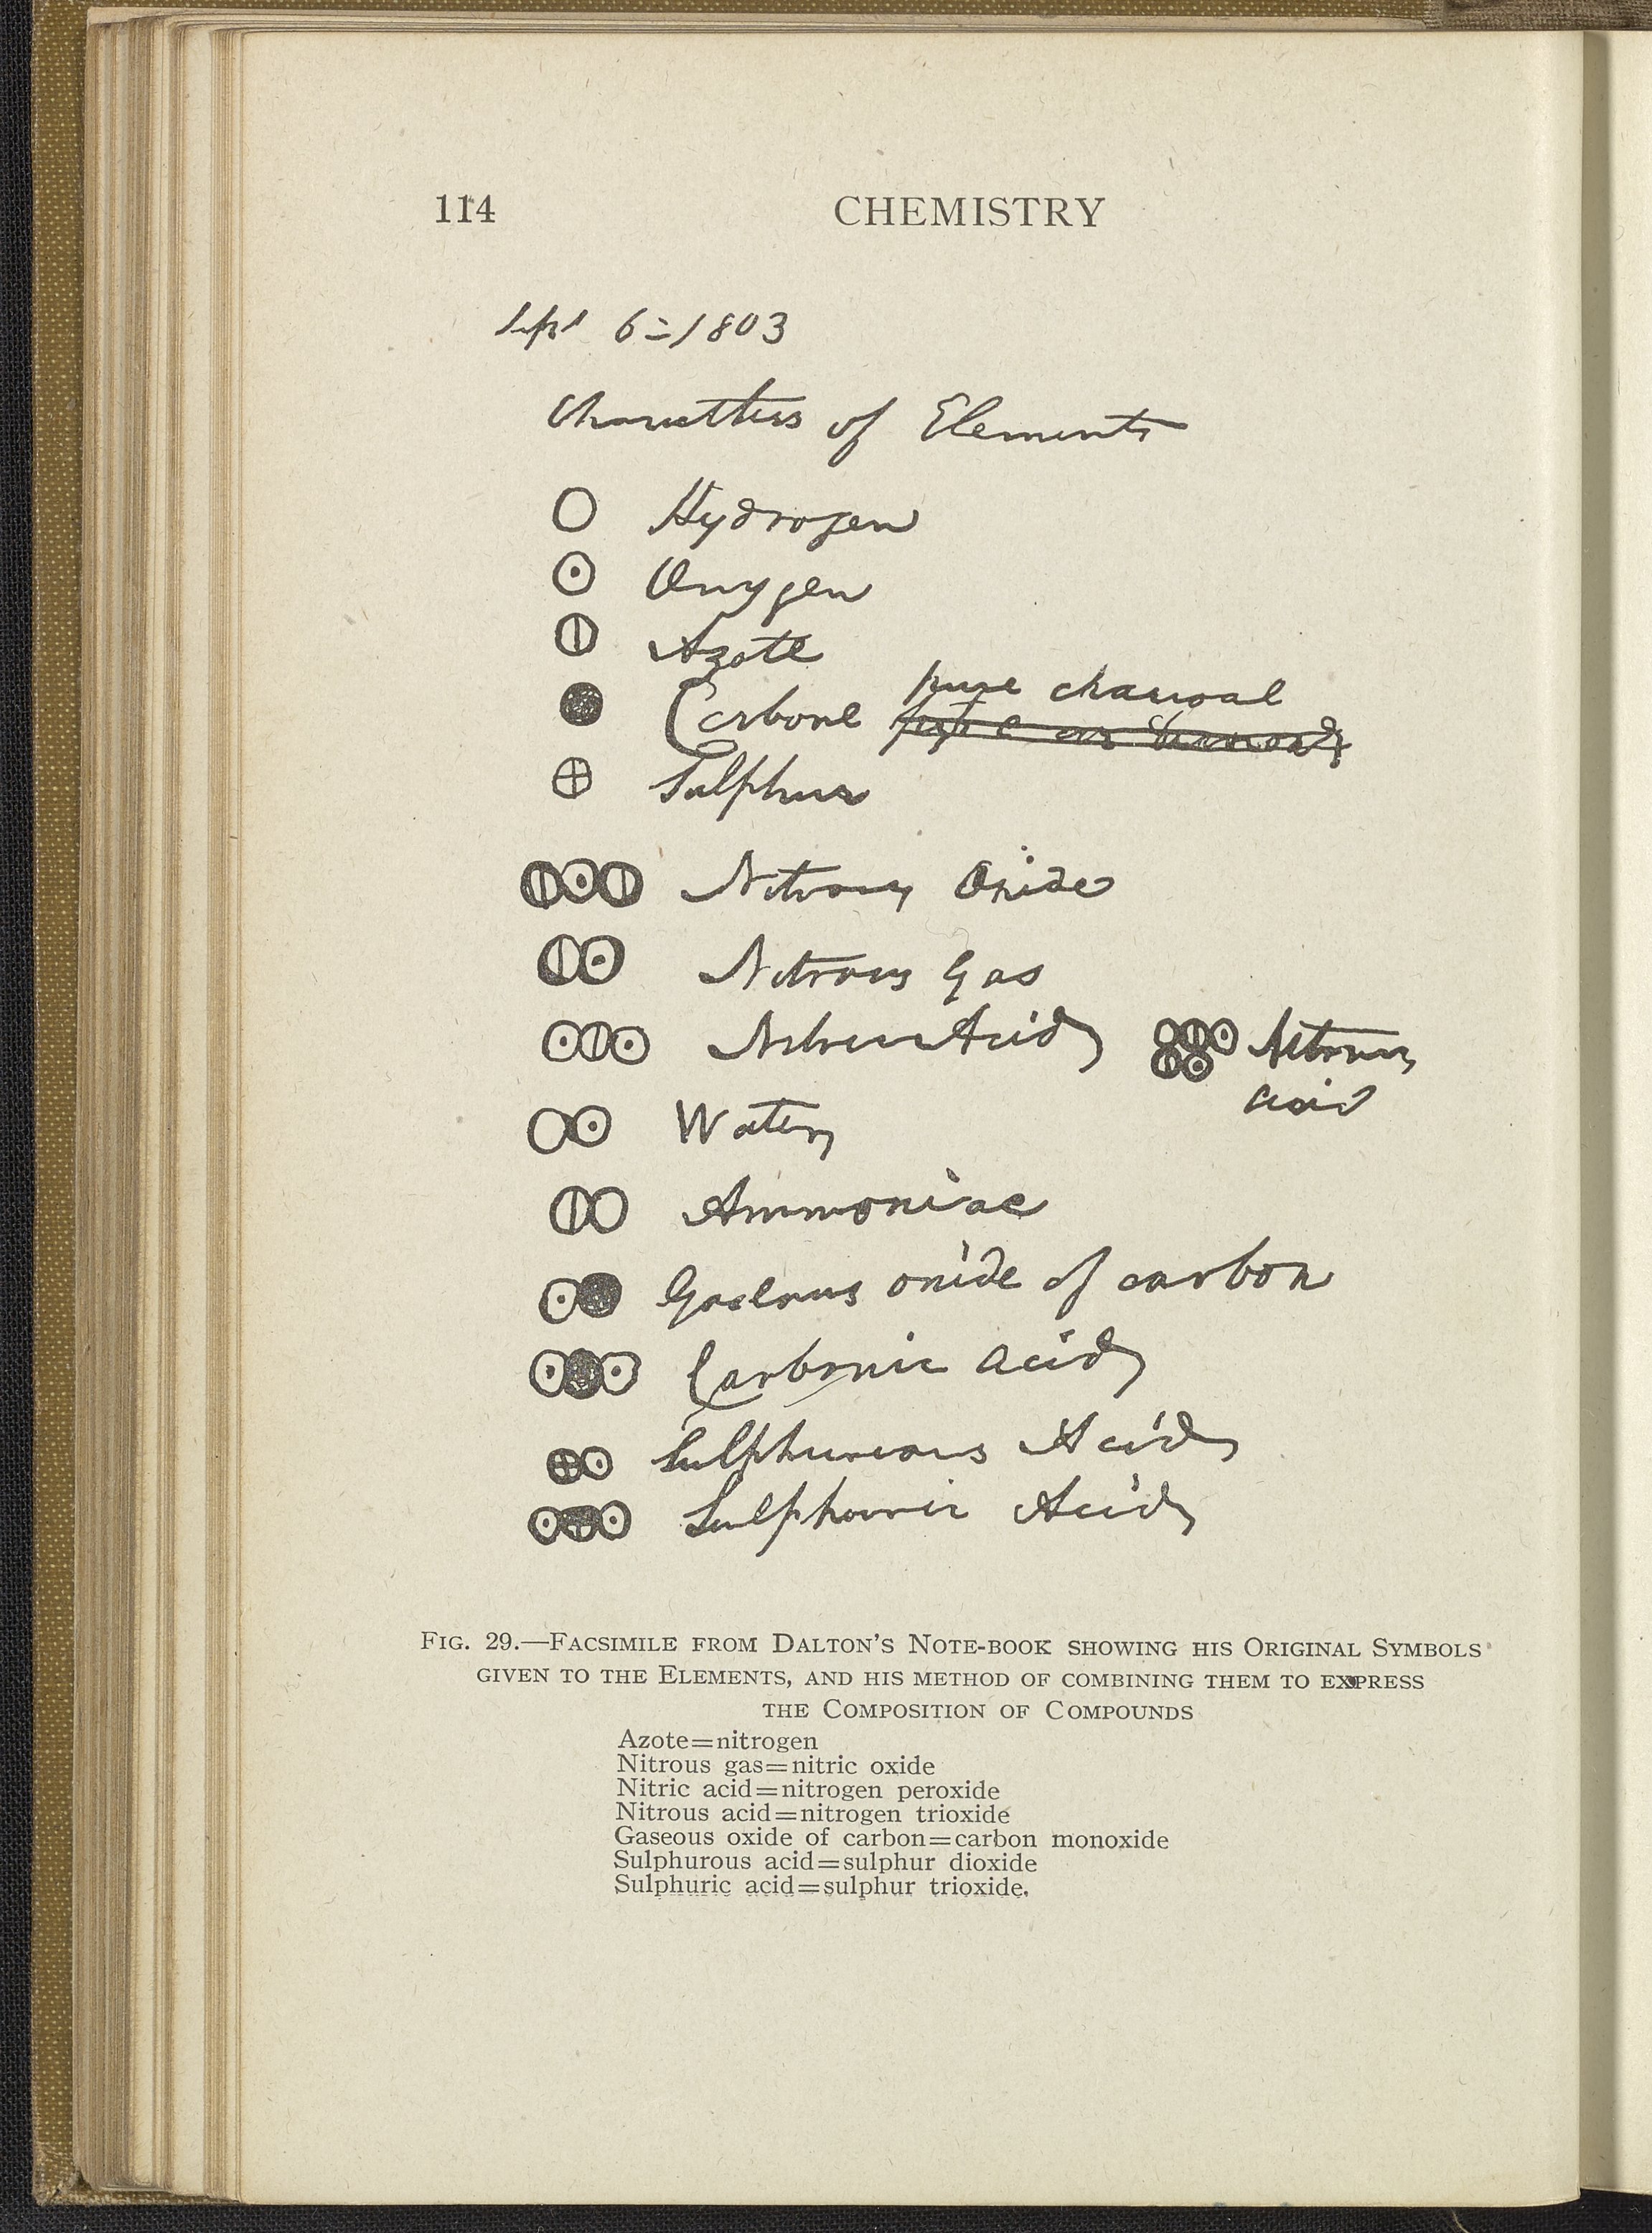 114 CHEMISTRY
Sept 6 - 1803
Characters of Elements
Hydrogen
Oxygen
Azote
pure charcoal
Carbone
Sulphur
Nitrous Oxide
Nitrous Gas
Nitric Acid
Nitrous
acid
Water
Ammoniac
Gaseous oxide of carbon
Carbonic acid
Sulphureous Acid
Sulphuric Acid
FIG. 29.—FACSIMILE FROM DALTON'S NOTE-BOOK SHOWING HIS ORIGINAL SYMBOLS
GIVEN TO THE ELEMENTS, AND HIS METHOD OF COMBINING THEM TO EXPRESS
THE COMPOSITION OF COMPOUNDS
Azote=nitrogen
Nitrous gas=nitric oxide
Nitric acid=nitrogen peroxide
Nitrous acid=nitrogen trioxide
Gaseous oxide of carbon=carbon monoxide
Sulphurous acid=sulphur dioxide
Sulphuric acid=sulphur trioxide.